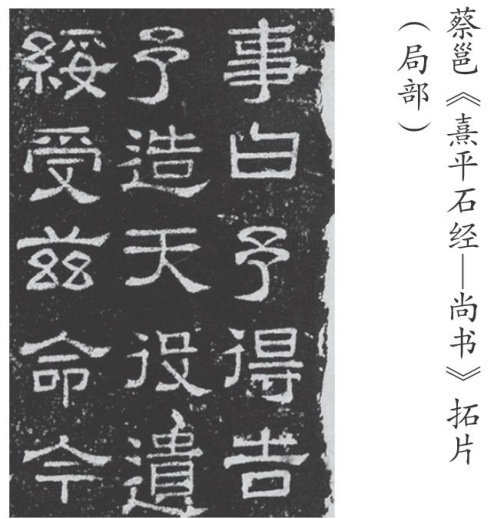 蔡邕《熹平石经—尚书》拓片
（局部）
事白予得吉
予造天役遺
綏受茲命今